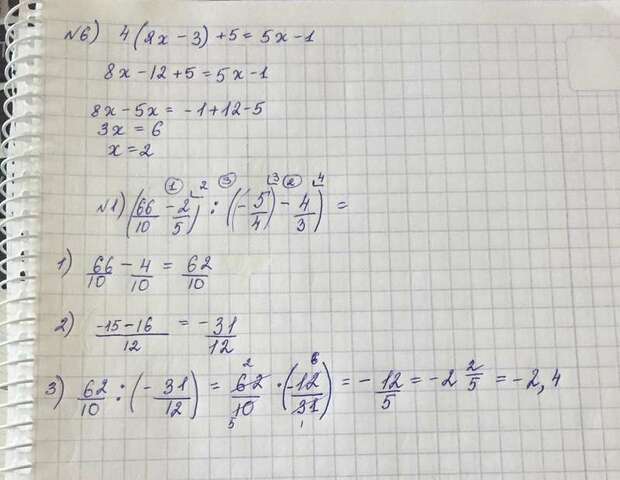 №6) 4(2x - 3) + 5 = 5x - 1
8x - 12 + 5 = 5x - 1
8x - 5x = -1 + 12 - 5
3x = 6
x = 2
№1) (66/10 - 2/5) : ((-5/4) - 4/3) =
1) 66/10 - 4/10 = 62/10
2) (-15 - 16)/12 = -31/12
3) 62/10 : (-31/12) = 62/10 · (-12/31) = -12/5 = -2 2/5 = -2,4